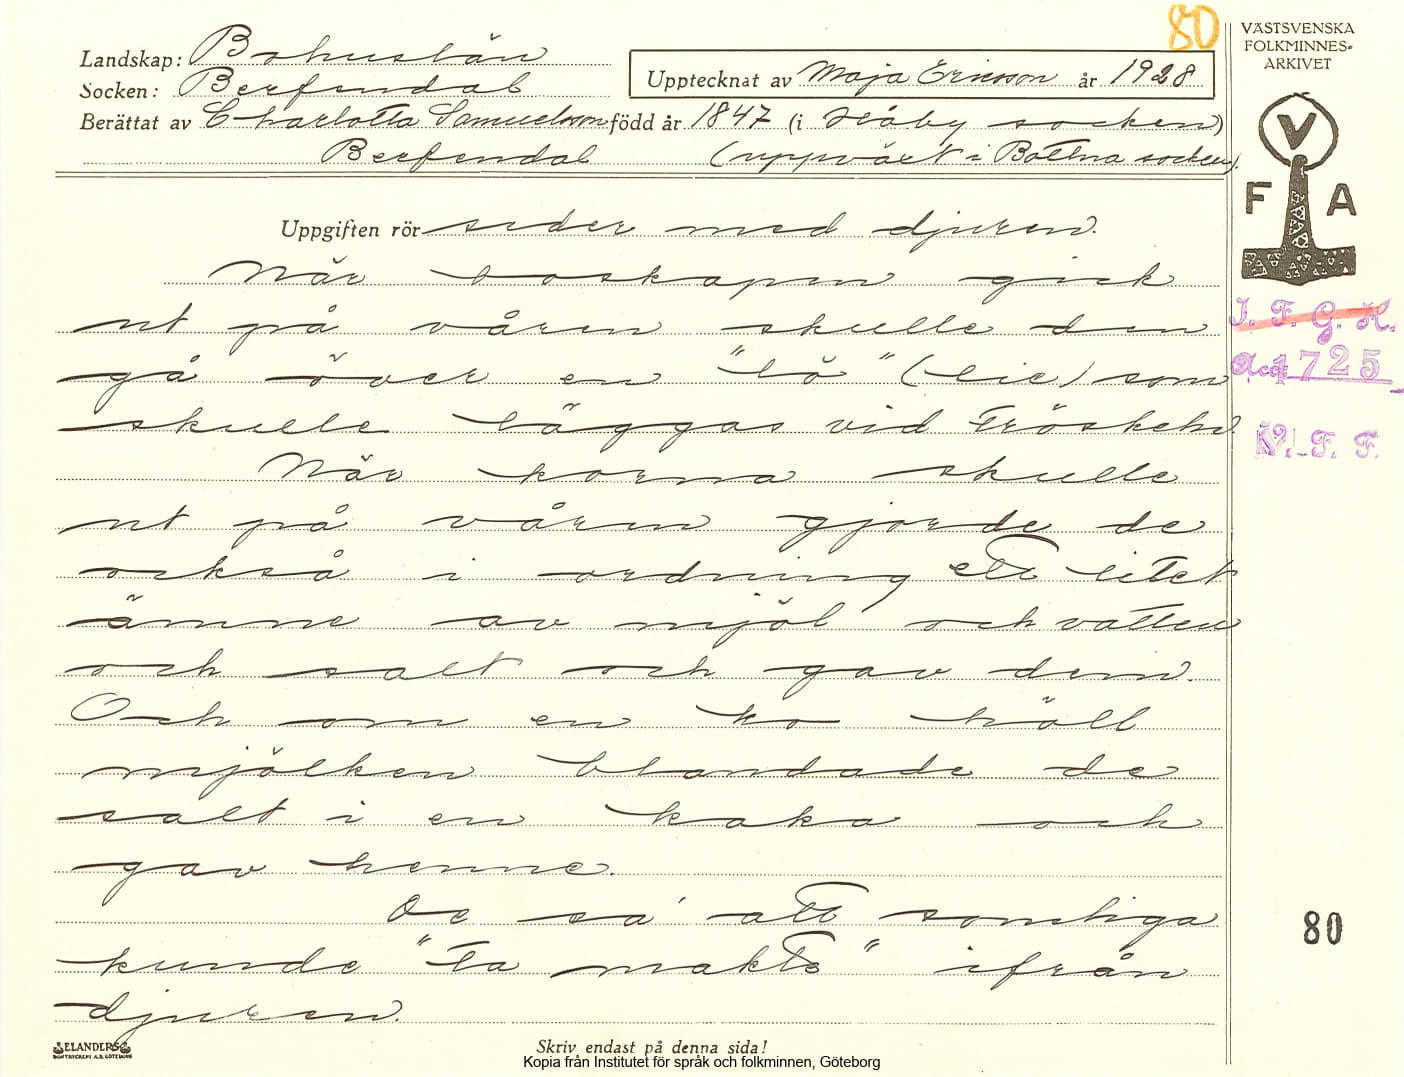 80
VÄSTSVENSKA
FOLKMINNES-
ARKIVET
Landskap: Bohuslän
Socken: Berfendal
Upptecknat av Maja Ericsson år 1928
Berättat av Charlotta Samuelsson född år 1847 (i Håby socken)
Berfendal (uppväxt i Bottna socken).
V
F A
Uppgiften rör seder med djuren.
När boskapen gick
ut på våren skulle den
gå över en "lö" (lie) som
skulle läggas vid tröskeln.
När korna skulle
ut på våren gjorde de
också i ordning ett litet
ämne av mjöl och vatten
och salt och gav dem.
Och om en ko höll
mjölken blandade de
salt i en kaka och
gav henne.
De sa' att somliga
kunde "ta makta" ifrån
djuren.
I. F. G. H.
Acc. 1725
V. F. F.
80
ELANDERS
BOKTRYCKERI A.B. GÖTEBORG
Skriv endast på denna sida!
Kopia från Institutet för språk och folkminnen, Göteborg